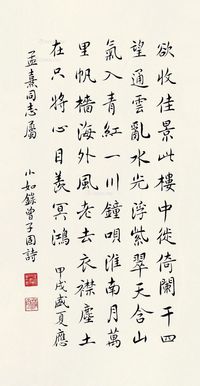 欲收佳景此樓中徙倚闌干四
望通雲亂水光浮紫翠天含山
氣入青紅一川鐘唄淮南月萬
里帆檣海外風老去衣襟塵土
在只將心目羨冥鴻 甲戌盛夏應
孟熹同志屬 小如錄曾子固詩